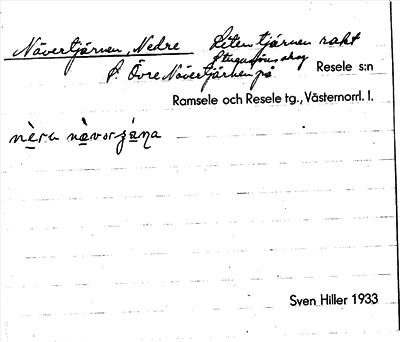 Nävertjärnen, Nedre Liten tjärnen rakt
S. Övre Nävertjärnen på Stugusjöns skog Resele s:n
Ramsele och Resele tg., Västernorrl. l.
nèra nævorʒána
Sven Hiller 1933